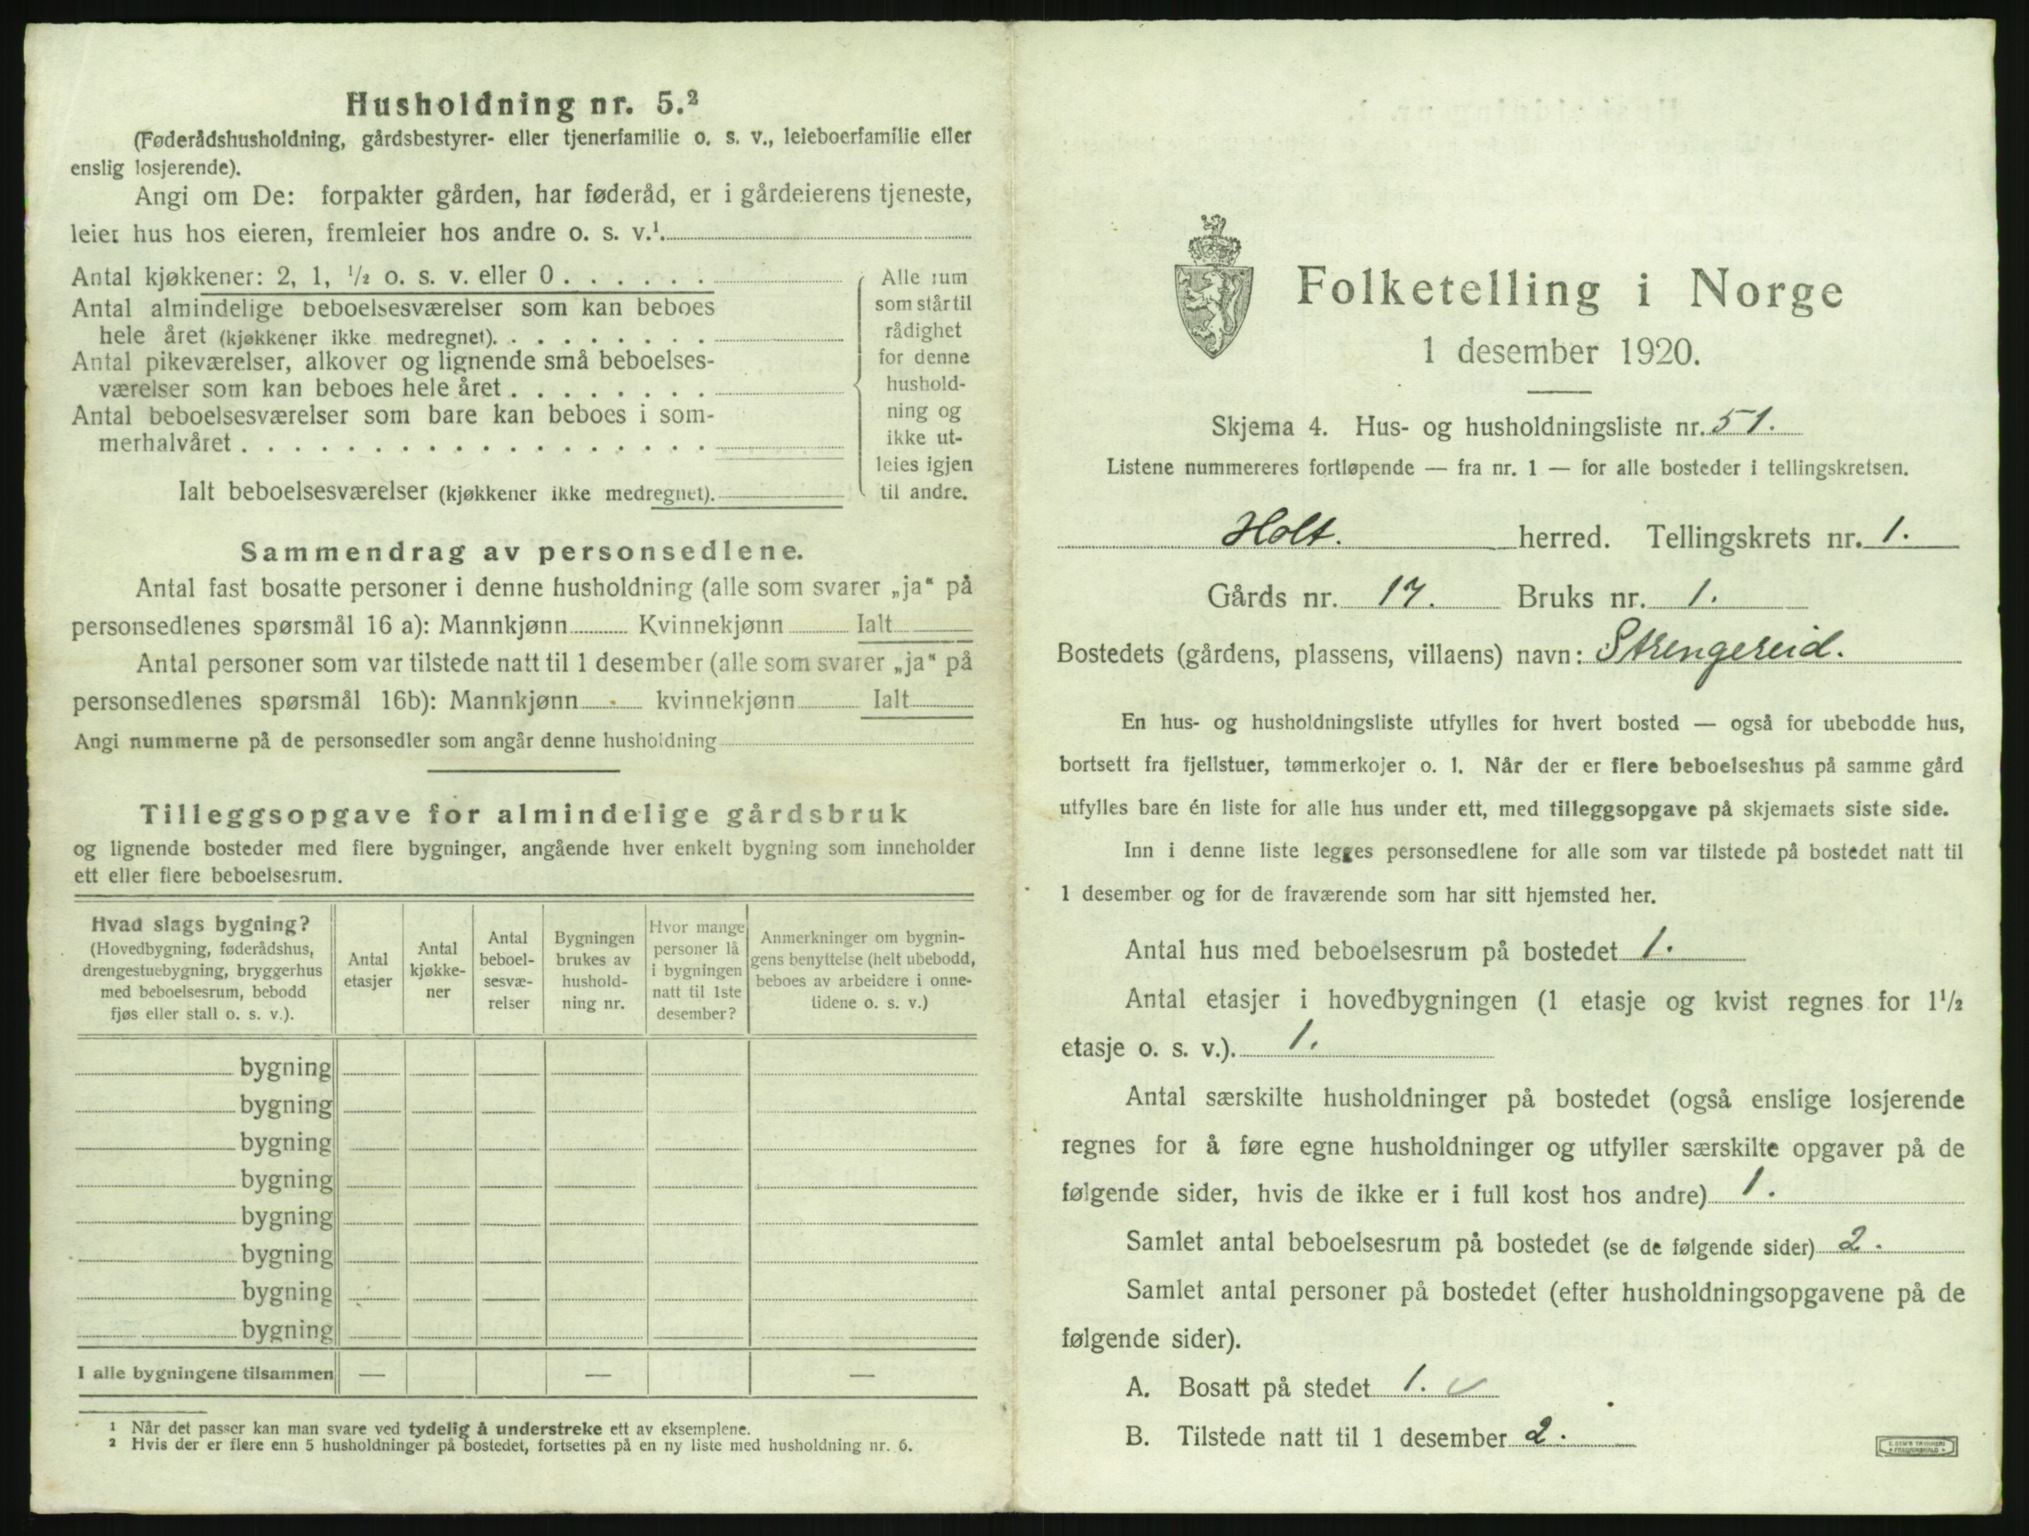 Husholdning nr. 5.²
(Føderådshusholdning, gårdsbestyrer- eller tjenerfamilie o. s. v., leieboerfamilie eller
enslig losjerende).
Angi om De: forpakter gården, har føderåd, er i gårdeierens tjeneste,
leier hus hos eieren, fremleier hos andre o. s. v.¹
Antal kjøkkener: 2, 1, ½ o. s. v. eller 0 . . . . . .
Antal almindelige beboelsesværelser som kan beboes
hele året (kjøkkener ikke medregnet). . . . . . . . .
Antal pikeværelser, alkover og lignende små beboelses-
værelser som kan beboes hele året . . . . . . . .
Antal beboelsesværelser som bare kan beboes i som-
merhalvåret . . . . . . . . . . . . . . . . . .
Ialt beboelsesværelser (kjøkkener ikke medregnet).
Alle rum
som står til
rådighet
for denne
hushold-
ning og
ikke ut-
leies igjen
til andre.
Sammendrag av personsedlene.
Antal fast bosatte personer i denne husholdning (alle som svarer „ja“ på
personsedlenes spørsmål 16 a): Mannkjønn Kvinnekjønn Ialt
Antal personer som var tilstede natt til 1 desember (alle som svarer „ja“ på
personsedlenes spørsmål 16b): Mannkjønn kvinnekjønn Ialt
Angi nummerne på de personsedler som angår denne husholdning
Tilleggsopgave for almindelige gårdsbruk
og lignende bosteder med flere bygninger, angående hver enkelt bygning som inneholder
ett eller flere beboelsesrum.
Hvad slags bygning?
(Hovedbygning, føderådshus,
drengestuebygning, bryggerhus
med beboelsesrum, bebodd
fjøs eller stall o. s. v.).
Antal
etasjer
Antal
kjøkke-
ner
Antal
beboel-
sesvæ-
relser
Bygningen
brukes av
hushold-
ning nr.
Hvor mange
personer lå
i bygningen
natt til 1ste
desember?
Anmerkninger om bygnin-
gens benyttelse (helt ubebodd,
beboes av arbeidere i onne-
tidene o. s. v.)
bygning
bygning
bygning
bygning
bygning
bygning
bygning
bygning
I alle bygningene tilsammen — — —
¹ Når det passer kan man svare ved tydelig å understreke ett av eksemplene.
² Hvis der er flere enn 5 husholdninger på bostedet, fortsettes på en ny liste med husholdning nr. 6.
Folketelling i Norge
1 desember 1920.
Skjema 4. Hus- og husholdningsliste nr. 51.
Listene nummereres fortløpende — fra nr. 1 — for alle bosteder i tellingskretsen.
Holt. herred. Tellingskrets nr. 1.
Gårds nr. 17. Bruks nr. 1.
Bostedets (gårdens, plassens, villaens) navn: Strengereid.
En hus- og husholdningsliste utfylles for hvert bosted — også for ubebodde hus,
bortsett fra fjellstuer, tømmerkojer o. l. Når der er flere beboelseshus på samme gård
utfylles bare én liste for alle hus under ett, med tilleggsopgave på skjemaets siste side.
Inn i denne liste legges personsedlene for alle som var tilstede på bostedet natt til
1 desember og for de fraværende som har sitt hjemsted her.
Antal hus med beboelsesrum på bostedet 1.
Antal etasjer i hovedbygningen (1 etasje og kvist regnes for 1½
etasje o. s. v.). 1.
Antal særskilte husholdninger på bostedet (også enslige losjerende
regnes for å føre egne husholdninger og utfyller særskilte opgaver på de
følgende sider, hvis de ikke er i full kost hos andre) 1.
Samlet antal beboelsesrum på bostedet (se de følgende sider) 2.
Samlet antal personer på bostedet (efter husholdningsopgavene på de
følgende sider).
A. Bosatt på stedet 1. ✓
B. Tilstede natt til 1 desember 2.